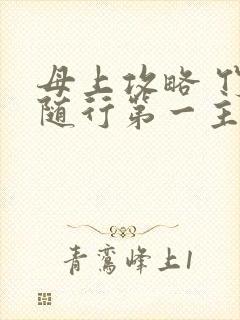 母上攻略
随行第一主
青鸾峰上1